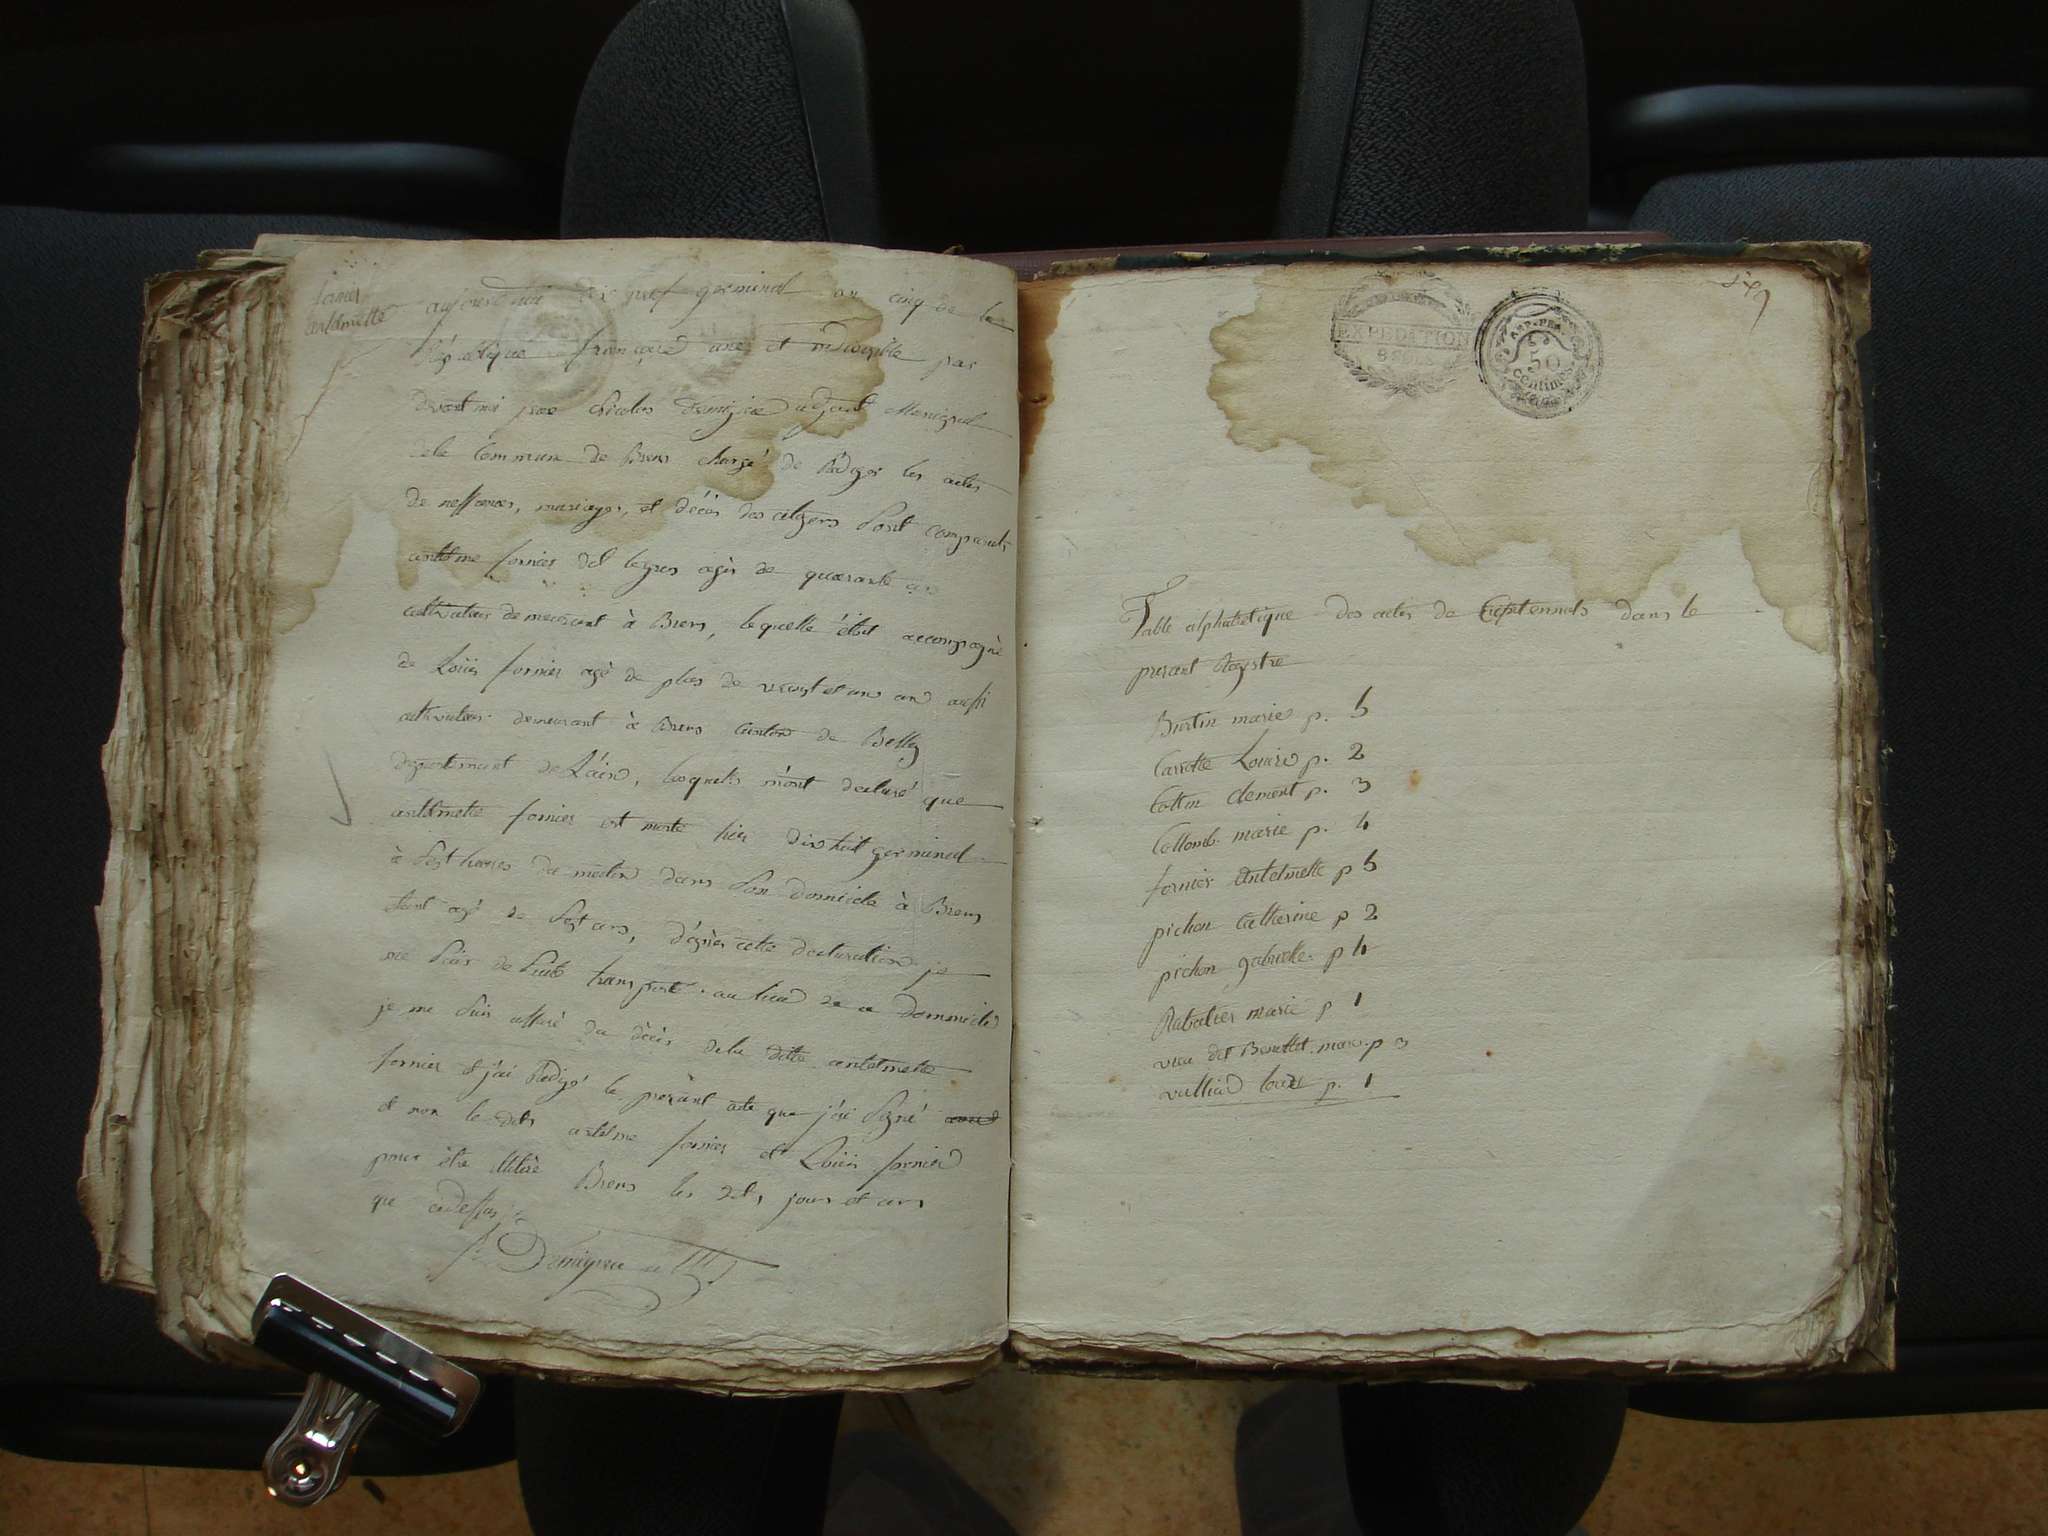 fornier
antelmette
aujourd'hui dix neuf germinal an cinq de la
République française une et indivisible par
devant moi adjoint Municipal
de la Commune de Brens chargé de Rédiger les actes
de nessances, mariages, et décès des citoyens sont comparuts
antelme fornier dit legros agés de quarante ans
cultivateur demeurant à Brens, lequelle étoit accompagné
de Loüis fornier agé de plus de vingt et un an aussi
cultivateur demeurant à Brens canton de Belley
département de L'ain, lesquels m'ont déclaré que
antelmette fornier est morte hier dix huit germinal
à sept heures du matin dans son domicile à Brens
étant agé de sept ans, d'après cette declaration je
me suis de suite transporté au lieu de ce dommicile
je me suis assuré du décès de la ditte antelmette
fornier et j'ai Rédigé le présant acte que j'ai signé
et non le dits antelme fornier et Loüis fornier
pour être Brens les dits jours et ans
que cidessus
EXPEDITION
8 SOLS
50
centimes
Table alphabetique des actes de dans le
present Registre
Burtin marie p. 5
Carrette Louise p. 2
Cottin clement p. 3
Collomb marie p. 4
fornier Antelmette p 5
pichon Catherine p 2
pichon gabrielle p 4
Rubatier marie p 1
dit p 3
vulliod louise p. 1